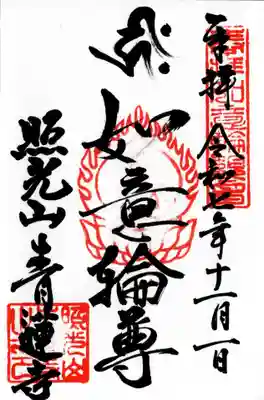 奉拝 令和七年十一月一日
如意輪尊
照光山 青蓮寺